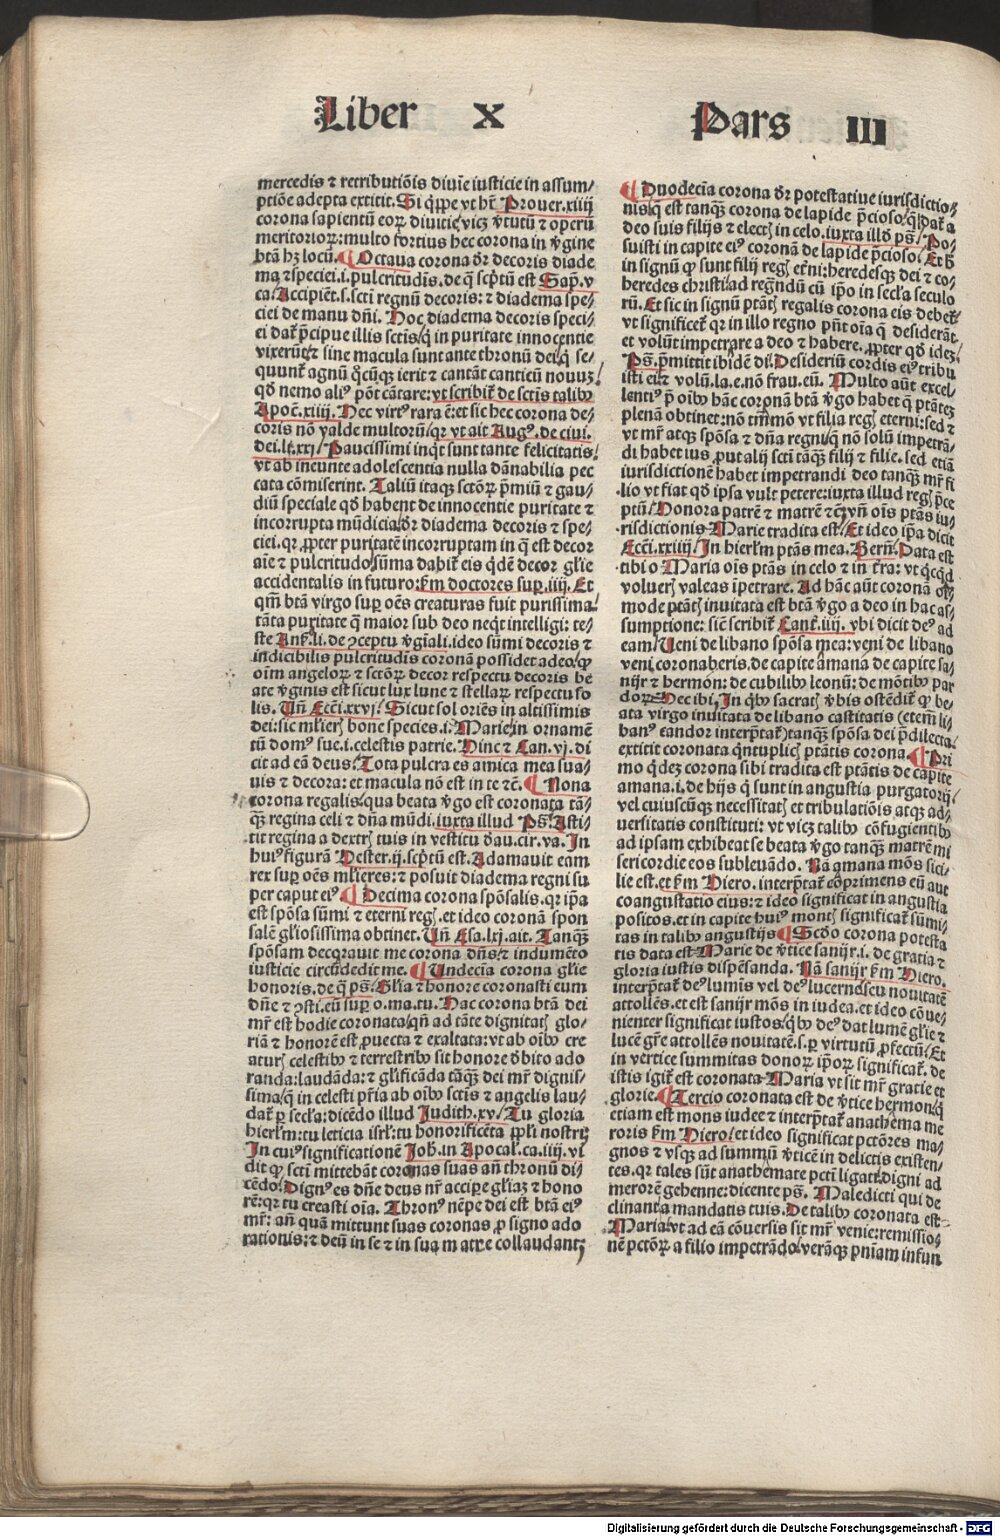 Liber X Pars III
mercedis ⁊ retributiōis diuīe iusticie in assum/
ptiōe adepta extitit. Si q̄ppe vt hr̄ Prouer.xiiij
corona sapientū eoꝝ diuitie/vicꝫ v̄tutū ⁊ operū
meritorioꝝ: multo fortius hec corona in v̄gine
btā hꝫ locū. ¶ Octaua corona dr̄ decoris diade
ma ⁊ speciei .i. pulcritudīs. de q̄ scptū est Sap. v
ca/ Accipiēt .s. scti regnū decoris: ⁊ diadema spe/
ciei de manu dn̄i. Hoc diadema decoris speci/
ei dat̄ p̄cipue illis sctīs/ q̄ in puritate innocentie
vixerūt/ ⁊ sine macula sunt ante thronū dei/ q̄ se/
quunt̄ agnū q̊cūqꝫ ierit ⁊ cantāt canticū nouuꝫ/
qd̄ nemo aliꝰ pōt cātare: vt scribit̄ de sctis talibꝰ
Apoc̄.xiiij. Hec virtꝰ rara ē: et sic hec corona de/
coris nō valde multorū/ qꝛ vt ait Augꝰ. de ciui.
dei.li.xxj/ Paucissimi inqt sunt tante felicitatis/
vt ab ineunte adolescentia nulla dānabilia pec
cata cōmiserint. Taliū itaqꝫ sctōꝝ p̄miū ⁊ gau/
diū speciale qd̄ habent de innocentie puritate ⁊
incorrupta mūdicia/ dr̄ diadema decoris ⁊ spe/
ciei. qꝛ ꝓpter puritatē incorruptam in q̄ est decor
aīe ⁊ pulcritudo/ sūma dabit̄ eis qdē decor glīe
accidentalis in futuro: scdm doctores sup .iiij. Et
qm̄ btā virgo sup oēs creaturas fuit purissima/
tāta puritate q̄ maior sub deo neqt intelligi: te/
ste Ans.li. de ꝯceptu v̄gīali. ideo sūmi decoris ⁊
indicibilis pulcritudīs coronā possidet adeo/ qꝙ
oīm angeloꝝ ⁊ sctōꝝ decor respectu decoris be
ate v̄ginis est sicut lux lune ⁊ stellaꝝ respectu so
lis. Vn̄ Ecci.xxvj/ Sicut sol oriēs in altissimis
dei: sic mlierꝭ bone species .i. Marie/ in ornamē
tū domꝰ sue .i. celestis patrie. Hinc ⁊ Can.vj. di
cit ad eā deus/ Tota pulcra es amica mea sua/
uis ⁊ decora: et macula nō est in te ⁊c̄. ¶ Nona
corona regalis/ qua beata v̄go est coronata tā/
qꝫ regina celi ⁊ dn̄a mūdi. iuxta illud Ps. Asti/
tit regina a dextrꝭ tuis in vestitu dau.cir.va. In
huiꝰ figurā Hester.ij. scptū est. Adamauit eam
rex sup oēs mlieres: ⁊ posuit diadema regni su
per caput eiꝰ ¶ Decima corona spōsalis. qꝛ ipa
est spōsa sūmi ⁊ eterni regꝭ. et ideo coronā spon
salē gliosissima obtinet. Vn̄ Esa.lxj. ait. Tanqꝫ
spōsam decorauit me corona dn̄s/ ⁊ indumēto
iusticie circūdedit me. ¶ Undecīa corona glīe
honoris. de q̄ ps. Glīa ⁊ honore coronasti eum
dn̄e ⁊ ꝯsti. eū sup o.ma.tu. Hac corona btā dei
mr̄ est hodie coronata/ qn̄ ad tāte dignitatꝭ glo/
riā ⁊ honorē est ꝓuecta ⁊ exaltata: vt ab oībꝰ cre
aturꝭ celestibꝰ ⁊ terrestribꝰ sit honore debito ado
randa: laudāda: ⁊ glificāda tāqꝫ dei mr̄ dignis/
sima/ q̄ in celesti pr̄ia ab oībꝰ sctis ⁊ angelis lau/
dat̄ p secła: dicēdo illud Judith.xv/ Tu gloria
hierłm: tu leticia isrł: tu honorificētia ppli nostri/
In cuiꝰ significationē Joh. in Apocał.ca.iiij. vi
dit qꝙ scti mittebāt coronas suas an̄ thronū di/
cēdo/ Dignꝰ es dn̄e deus nr̄ accipe glīaꝫ ⁊ hono
rē: qꝛ tu creasti oīa. Thronꝰ nēpe dei est btā eiꝰ
mr̄: an̄ quā mittunt suas coronas ꝓ signo ado
rationis: ⁊ deū in se ⁊ in sua matre collaudant;
¶ Duodecīa corona dr̄ potestatiue iurisdictio/
nis/ q̄ est tanqꝫ corona de lapide p̄cioso/ q̄ dat̄ a
deo suis filijs ⁊ electꝭ in celo. iuxta illd̄ ps/ Po/
suisti in capite eiꝰ coronā de lapide p̄cioso. Et h̄
in signū qꝙ sunt filij regꝭ et̄ni: heredesqꝫ dei ⁊ co/
heredes christi/ ad regnādū cū ipo in secła seculo
rū. Et sic in signū ptātꝭ regalis corona eis debet̄/
vt significet̄ qꝛ in illo regno pn̄t oīa q̄ desiderāt/
et volūt impetrare a deo ⁊ habere. ꝓpter qd̄ ideꝫ
Ps. p̄mittit ibidē di. Desideriū cordis eiꝰ tribu
isti ei/ ⁊ volū.la.e.nō frau.eū. Multo aūt excel/
lentiꝰ p̄ oībꝰ hāc coronā btā v̄go habet q̄ ptātē
plenā obtinet: nō tm̄mō vt filia regꝭ eterni: sed ⁊
vt mr̄ atqꝫ spōsa ⁊ dn̄a regni/ q̄ nō solū impetrā/
di habet ius, put alij scti tāqꝫ filij ⁊ filie. sed etiā
iurisdictionē habet impetrandi deo tanqꝫ mr̄ fi
lio vt fiat qd̄ ipsa vult petere: iuxta illud regꝭ p̄ce
ptū/ Honora patrē ⁊ matrē ⁊c̄. vn̄ oīs ptās iu/
risdictionis Marie tradita est/ Et ideo ipa dicit
Ecci.xxiiij/ In hierłm ptās mea. Bern̄/ Data est
tibi o Maria oīs ptās in celo ⁊ in tr̄a: vt qcqd
voluerꝭ valeas īpetrare. Ad hāc aūt coronā oī/
mode ptātꝭ inuitata est btā v̄go a deo in hac as/
sumptione: sic scribit̄ Cant.iiij. vbi dicit deꝰ ad
eam/ Veni de libano spōsa mea: veni de libano
veni coronaberis. de capite amana de capite sa/
nijr ⁊ hermon: de cubilibꝰ leonū: de mōtibꝰ par
doꝝ. Hec ibi/ In qbꝰ sacratꝭ v̄bis ostēdit̄ qꝙ be/
ata virgo inuitata de libano castitatis (etem̄ li/
banꝰ candor interptat̄) tanqꝫ spōsa dei p̄dilecta/
extitit coronata qntuplici ptātis corona. ¶ Pri
mo qdeꝫ corona sibi tradita est ptātis de capite
amana .i. de hijs q̄ sunt in angustia purgatorij/
vel cuiuscūqꝫ necessitatꝭ et tribulatiōis atqꝫ ad/
uersitatis constituti: vt vicꝫ talibꝰ cōfugientibꝰ
ad ipsam exhibeat se beata v̄go tanqꝫ matrē mi
sericordie eos subleuādo. Nā amana mōs sici/
lie est. et scdm Hiero. interptat̄ cōprimens eū aut
coangustatio eius: ⁊ ideo significat in angustia
positos. et in capite huiꝰ montꝭ significat̄ sūmi/
tas in talibꝰ angustijs ¶ Scdo corona potesta
tis data est Marie de v̄tice sanijr .i. de gratia ⁊
gloria iustis dispēsanda. Nā sanijr scdm Hiero.
interptat̄ deꝰ luminis vel deꝰ lucerne/ seu nouitatē
attollēs. et est sanijr mōs in iudea. et ideo cōue/
nienter significat iustos/ qbꝰ deꝰ dat lumē glīe ⁊
lucē gr̄e attollēs nouitatē .s. p virtutū ꝓfectū/ Et
in vertice summitas donoꝝ ipoꝝ significat̄. de
istis igit̄ est coronata Maria vt sit mr̄ gratie et
glorie. ¶ Tercio coronata est de v̄tice hermon/ q̄
etiam est mons iudee ⁊ interptat̄ anathema me
roris scdm Hiero/ et ideo significat pctōres ma/
gnos ⁊ vsqꝫ ad summū v̄ticē in delictis existen/
tes. qꝛ tales sūt anathemate pcti ligati/ digni ad
merorē gehenne: dicente ps. Maledicti qui de
clinant a mandatis tuis. De talibꝰ coronata est
Maria/ vt ad eā cōuersis sit mr̄ venie: remissio/
nē pctōꝝ a filio impetrādo/ verāqꝫ pniam infun
Digitalisierung gefördert durch die Deutsche Forschungsgemeinschaft - DFG